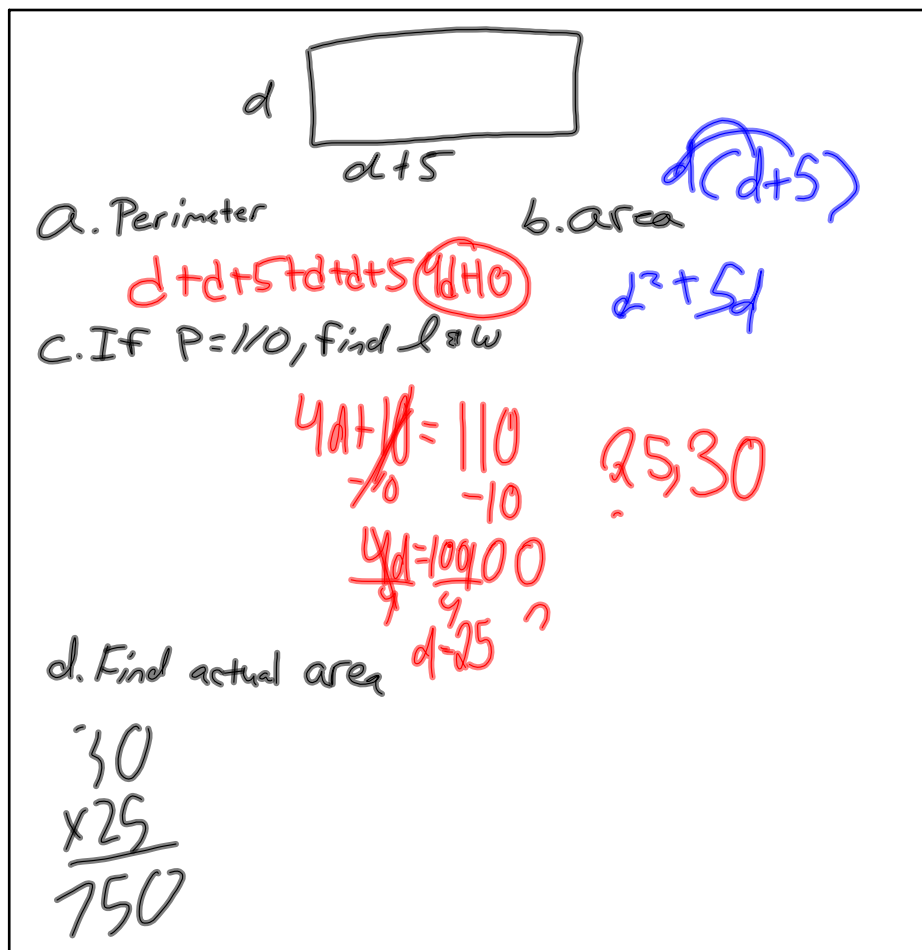 d
d+5
d(d+5)
a. Perimeter
b. area
d+d+5+d+d+5 4d+10
d²+5d
c. If P=110, find l & w
4d+10=110
-10 -10
25,30
4d=100 00
4 4
d=25
d. Find actual area
30
x25
750